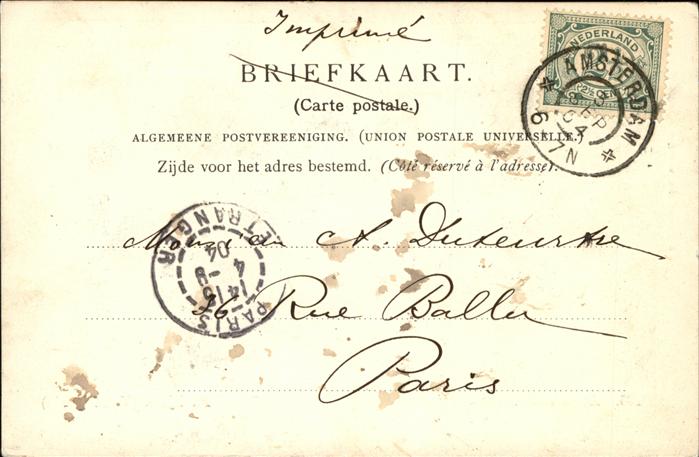 Imprimé
NEDERLAND
2½ CENT
BRIEFKAART.
(Carte postale.)
AMSTERDAM
3 SEP 04
6-7N
ALGEMEENE POSTVEREENIGING. (UNION POSTALE UNIVERSELLE.)
Zijde voor het adres bestemd. (Côté réservé à l'adresse).
PARIS ETRANGER
4-9
04
Monsieur A.
26 Rue Ballu
Paris